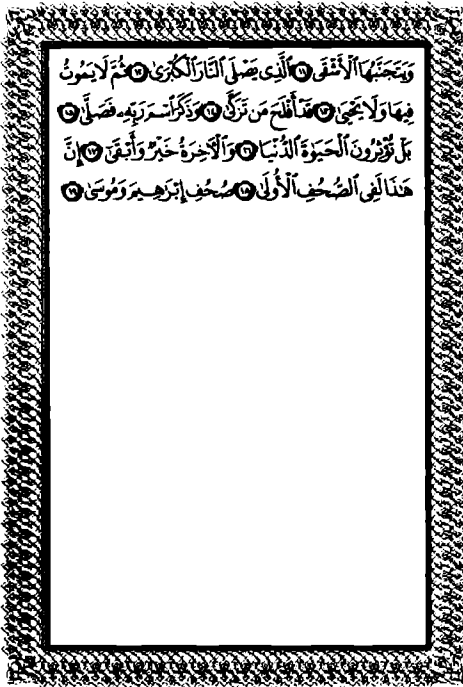 وَيَتَجَنَّبُهَا ٱلْأَشْقَى ١١ ٱلَّذِى يَصْلَى ٱلنَّارَ ٱلْكُبْرَىٰ ١٢ ثُمَّ لَا يَمُوتُ
فِيهَا وَلَا يَحْيَىٰ ١٣ قَدْ أَفْلَحَ مَن تَزَكَّىٰ ١٤ وَذَكَرَ ٱسْمَ رَبِّهِۦ فَصَلَّىٰ ١٥
بَلْ تُؤْثِرُونَ ٱلْحَيَوٰةَ ٱلدُّنْيَا ١٦ وَٱلْـَٔاخِرَةُ خَيْرٌ وَأَبْقَىٰٓ ١٧ إِنَّ
هَـٰذَا لَفِى ٱلصُّحُفِ ٱلْأُولَىٰ ١٨ صُحُفِ إِبْرَٰهِيمَ وَمُوسَىٰ ١٩